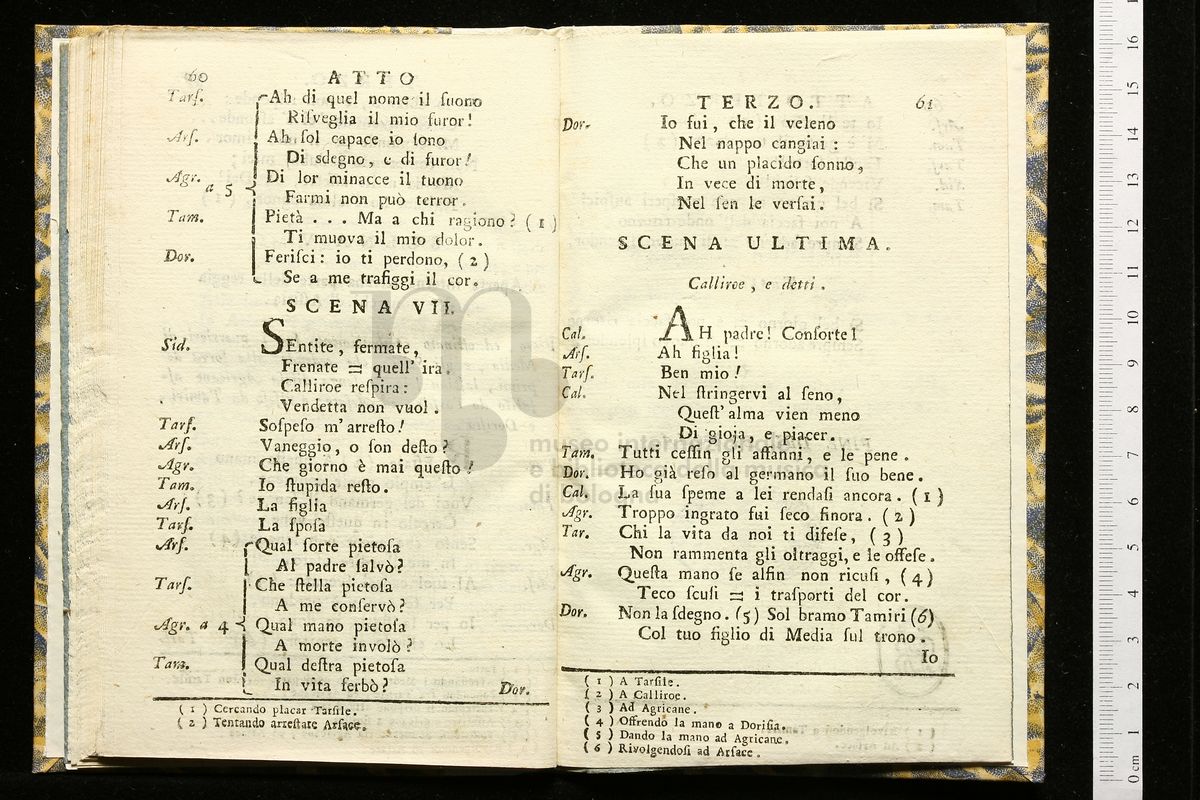 60 ATTO
Tarſ. Ah di quel nome il ſuono
Riſveglia il mio furor!
Arſ. Ah ſol capace io ſono
Di sdegno, e di furor!
Agr. a 5 Di lor minacce il tuono
Farmi non può terror.
Tam. Pietà . . . Ma a chi ragiono? ( 1 )
Ti muova il mio dolor.
Dor. Feriſci: io ti perdono, ( 2 )
Se a me trafiggi il cor.
SCENA VII.
Sid. SEntite, fermate,
Frenate = quell' ira.
Calliroe reſpira:
Vendetta non vuol.
Tarſ. Soſpeſo m' arreſto!
Arſ. Vaneggio, o ſon deſto?
Agr. Che giorno è mai queſto!
Tam. Io ſtupida reſto.
Arſ. La figlia
Tarſ. La ſpoſa
Arſ. Qual ſorte pietoſa
Al padre ſalvò?
Tarſ. Che ſtella pietoſa
A me conſervò?
Agr. a 4 Qual mano pietoſa
A morte involò?
Tam. Qual deſtra pietoſa
In vita ſerbò? Dor.
( 1 ) Cercando placar Tarſile.
( 2 ) Tentando arreſtare Arſace.
TERZO. 61
Dor. Io fui, che il veleno
Nel nappo cangiai :
Che un placido ſonno,
In vece di morte,
Nel ſen le verſai.
SCENA ULTIMA.
Calliroe, e detti.
Cal. AH padre! Conſorte!
Arſ. Ah figlia!
Tarſ. Ben mio!
Cal. Nel ſtringervi al ſeno,
Queſt' alma vien meno
Di gioja, e piacer.
Tam. Tutti ceſſin gli affanni, e le pene.
Dor. Ho già reſo al germano il ſuo bene.
Cal. La ſua ſpeme a lei rendaſi ancora. ( 1 )
Agr. Troppo ingrato fui ſeco finora. ( 2 )
Tar. Chi la vita da noi ti difeſe, ( 3 )
Non rammenta gli oltraggi, e le offeſe.
Agr. Queſta mano ſe alfin non ricuſi, ( 4 )
Teco ſcuſi = i traſporti del cor.
Dor. Non la ſdegno. (5) Sol bramo Tamiri (6)
Col tuo figlio di Media ſul trono.
Io
( 1 ) A Tarſile.
( 2 ) A Calliroe.
( 3 ) Ad Agricane.
( 4 ) Offrendo la mano a Doriſia.
( 5 ) Dando la mano ad Agricane.
( 6 ) Rivolgendoſi ad Arſace.
museo internazionale
e biblioteca della musica
di bologna